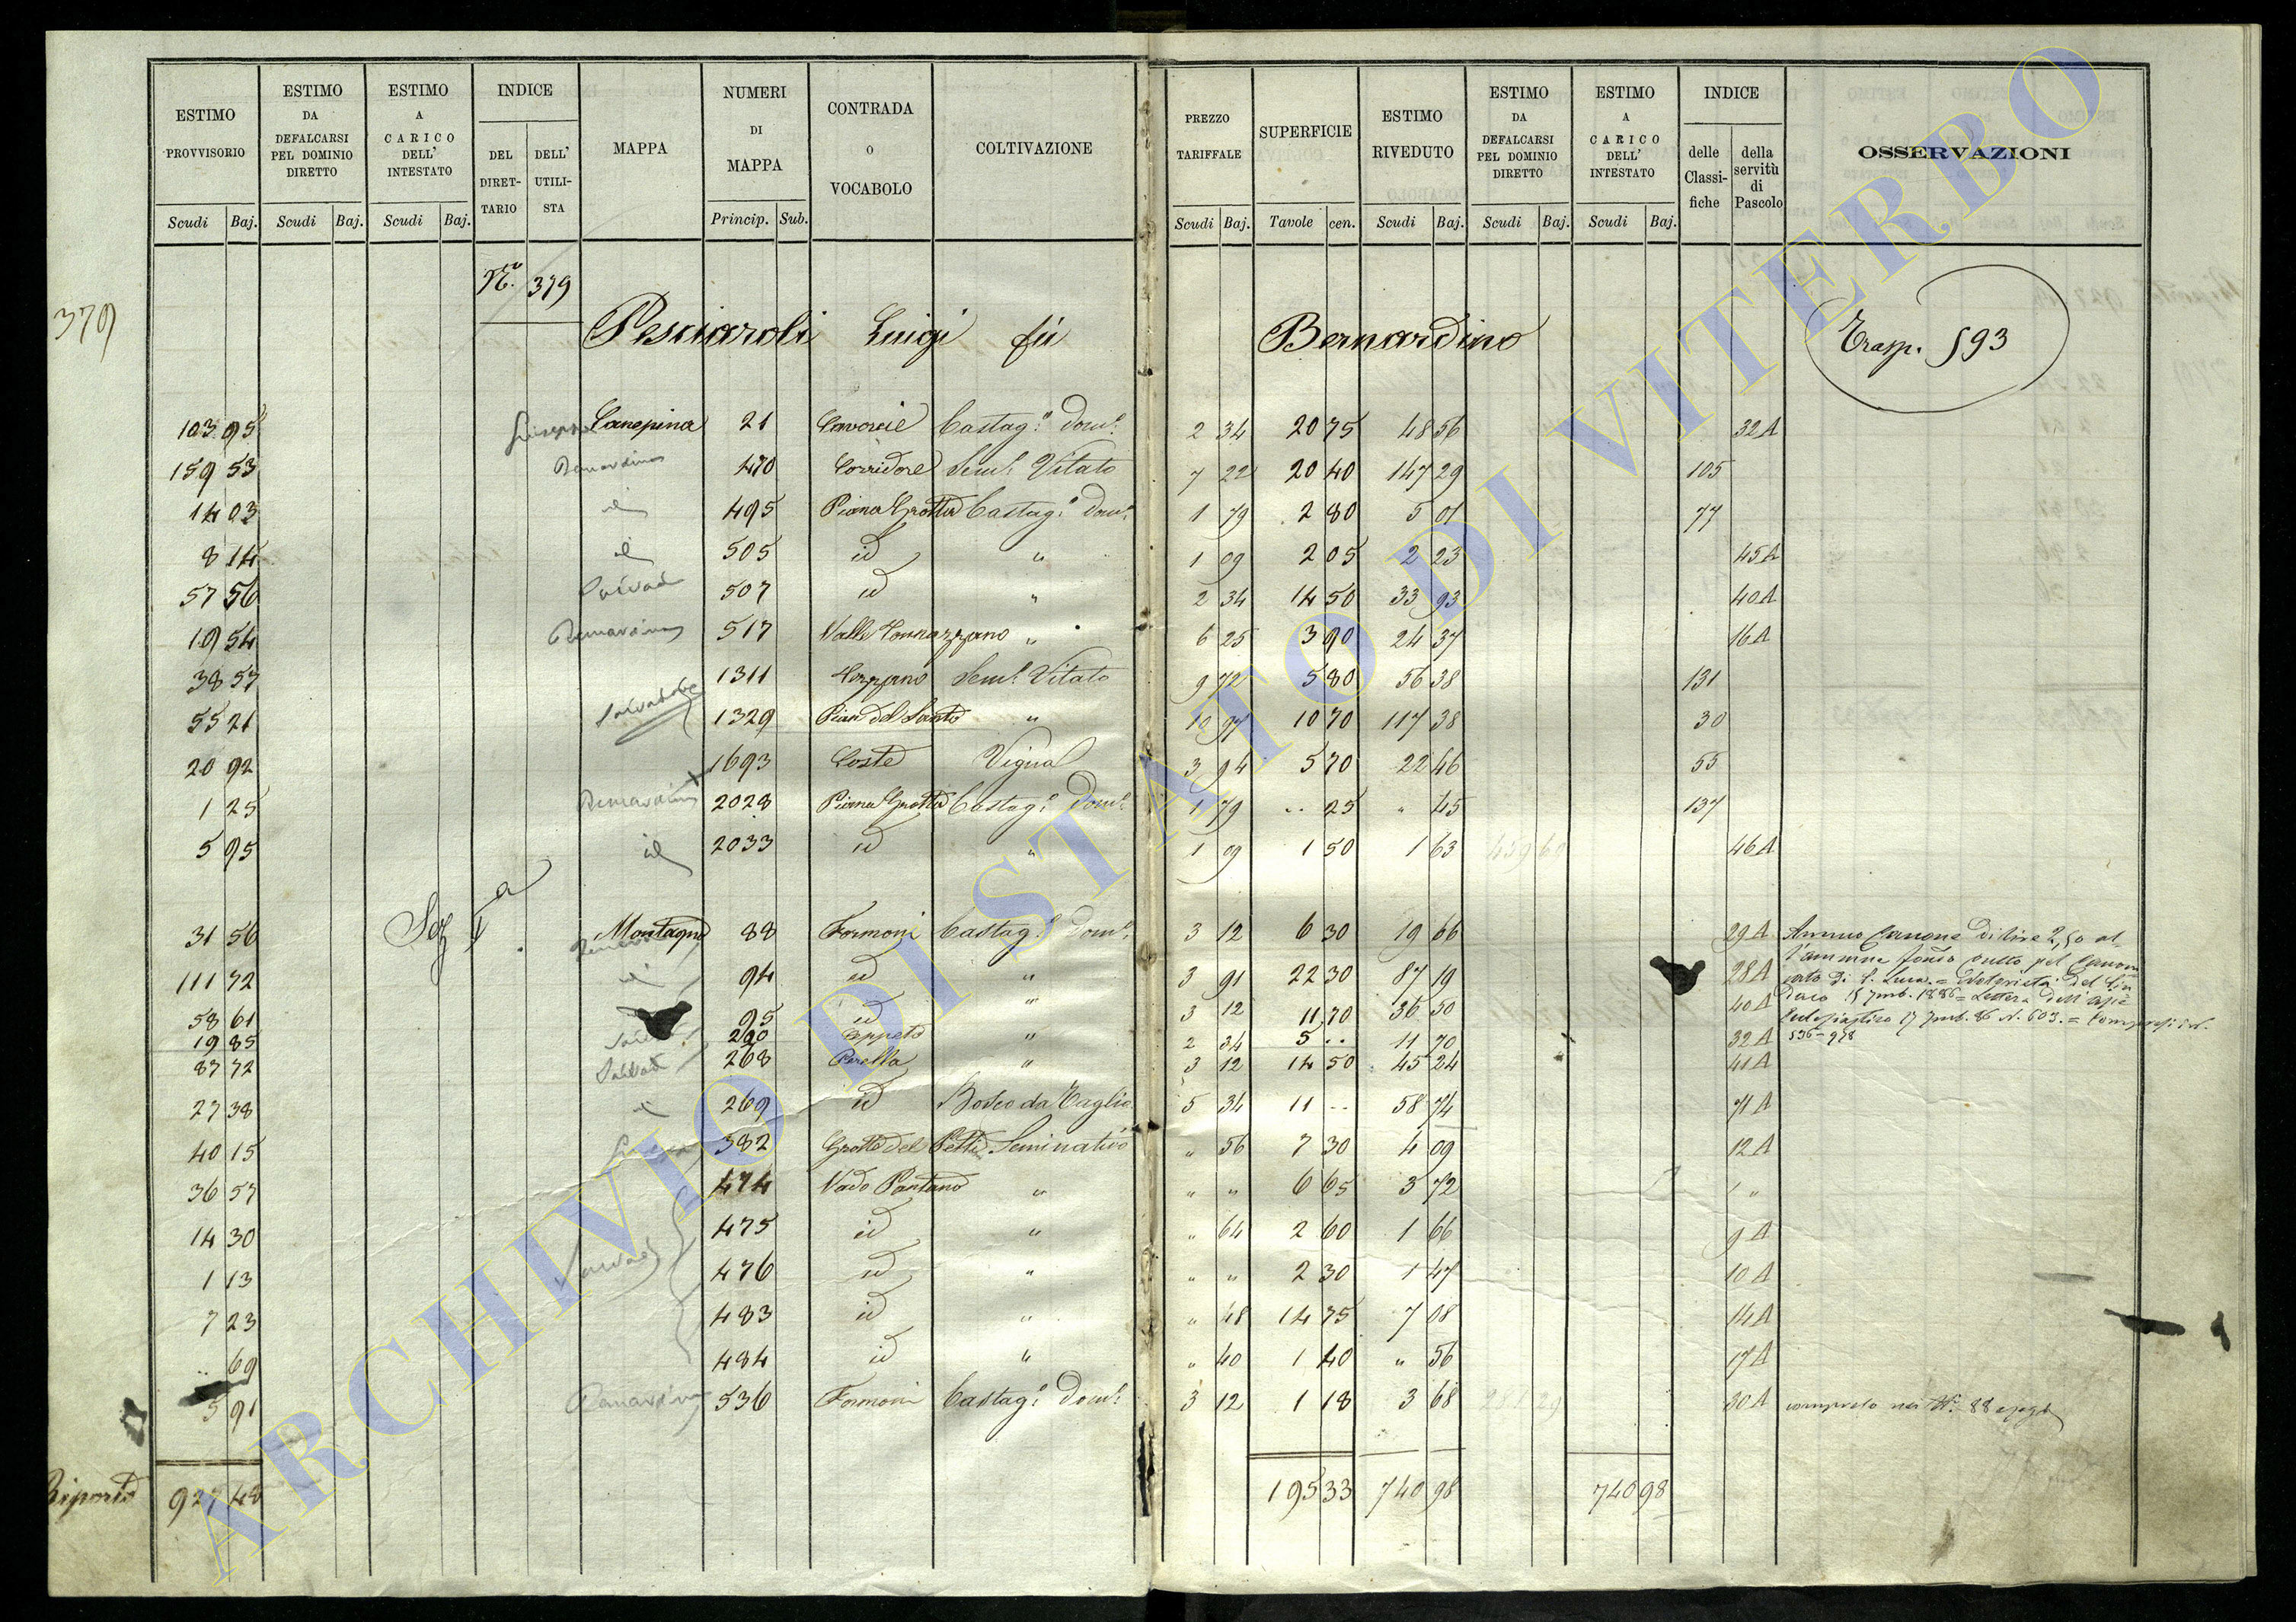 ESTIMO PROVVISORIO | ESTIMO DA DEFALCARSI PEL DOMINIO DIRETTO | ESTIMO A CARICO DELL' INTESTATO | INDICE DEL DIRETTARIO | DELL' UTILISTA | MAPPA | NUMERI DI MAPPA | CONTRADA O VOCABOLO | COLTIVAZIONE | PREZZO TARIFFALE | SUPERFICIE | ESTIMO RIVEDUTO | ESTIMO DA DEFALCARSI PEL DOMINIO DIRETTO | ESTIMO A CARICO DELL' INTESTATO | INDICE delle Classifiche | della servitù di Pascolo | OSSERVAZIONI
Scudi Baj. | Scudi Baj. | Scudi Baj. | Princip. Sub. | Scudi Baj. | Tavole cen. | Scudi Baj. | Scudi Baj. | Scudi Baj.
379
N.º 379
Pesciaroli Luigi fu Bernardino
Trasp. 593
103 95 Giuseppe Canepina 21 Castag.º Dom.º 2 34 20 75 48 56 32A
159 53 Bernardino 470 Corridore Sem.º Vitato 7 22 20 40 147 29 105
14 03 id 495 Piana Grotta Castag.º Dom.º 1 79 2 80 5 01 77
8 14 id 505 id " 1 09 2 05 2 23 45A
57 56 Salvad 507 id " 2 34 14 50 33 93 40A
19 54 Bernardino 517 Valle " 6 25 3 90 24 37 16A
38 57 1311 Sem.º Vitato 9 72 5 80 56 38 131
55 21 Salvadore 1329 Pian del Santo " 10 97 10 70 117 38 30
20 92 1693 Coste Vignal 3 94 5 70 22 46 55
1 25 Bernardino 2028 Piana Grotta Castag.º Dom.º 1 79 .. 25 " 45 137
5 95 id 2033 id " 1 09 1 50 1 63 459 69 46A
Sez Iª
31 56 Montagna 88 Formoni Castag.º Dom.º 3 12 6 30 19 66 29A
111 72 id 94 id " 3 91 22 30 87 19 28A
58 61 95 id " 3 12 11 70 36 50 40A
19 85 200 Cappeto " 2 34 5 .. 11 70 32A
87 72 Salvad 268 Perella " 3 12 14 50 45 24 41A
27 38 id 269 id Bosco da Taglio 5 34 11 .. 58 74 71A
40 15 382 Grotte del Seminativo " 56 7 30 4 09 12A
36 57 474 Vado Pantano " " " 6 65 3 72 "
14 30 475 id " " 64 2 60 1 66 9A
1 13 Salvad 476 id " " " 2 30 1 47 10A
7 23 483 id " " 48 14 75 7 08 14A
.. 69 484 id " " 40 1 40 " 56 17A
5 91 Bernardino 536 Formoni Castag.º Dom.º 3 12 1 18 3 68 281 29 30A
Annuo Canone di lire 2,50 al-
di S. Luca = Notorietà del Sin
daco 15 7mb. 1886 = Lettera dell'
17 7mb. 86 N. 603. =
536 - 978
compreso nei N.º 88
Riporto 927 48 195 33 740 98 740 98
ARCHIVIO DI STATO DI VITERBO